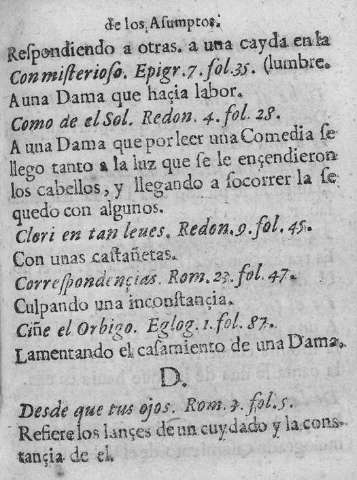 de los Asumptos.
Respondiendo a otras. a una cayda en la
Con misterioso. Epigr. 7. fol. 35. (lumbre.
A una Dama que haçia labor.
Como de el Sol. Redon. 4. fol. 28.
A una Dama que por leer una Comedia se
llego tanto a la luz que se le ençendieron
los cabellos, y llegando a socorrer la se
quedo con algunos.
Clori en tan leues. Redon. 9. fol. 45.
Con unas castañetas.
Correspondençias. Rom. 23. fol. 47.
Culpando una inconstançia.
Ciñe el Orbigo. Eglog. 1. fol. 87.
Lamentando el casamiento de una Dama.
D.
Desde que tus ojos. Rom. 3. fol. 5.
Refiere los lançes de un cuydado y la cons-
tançia de el.